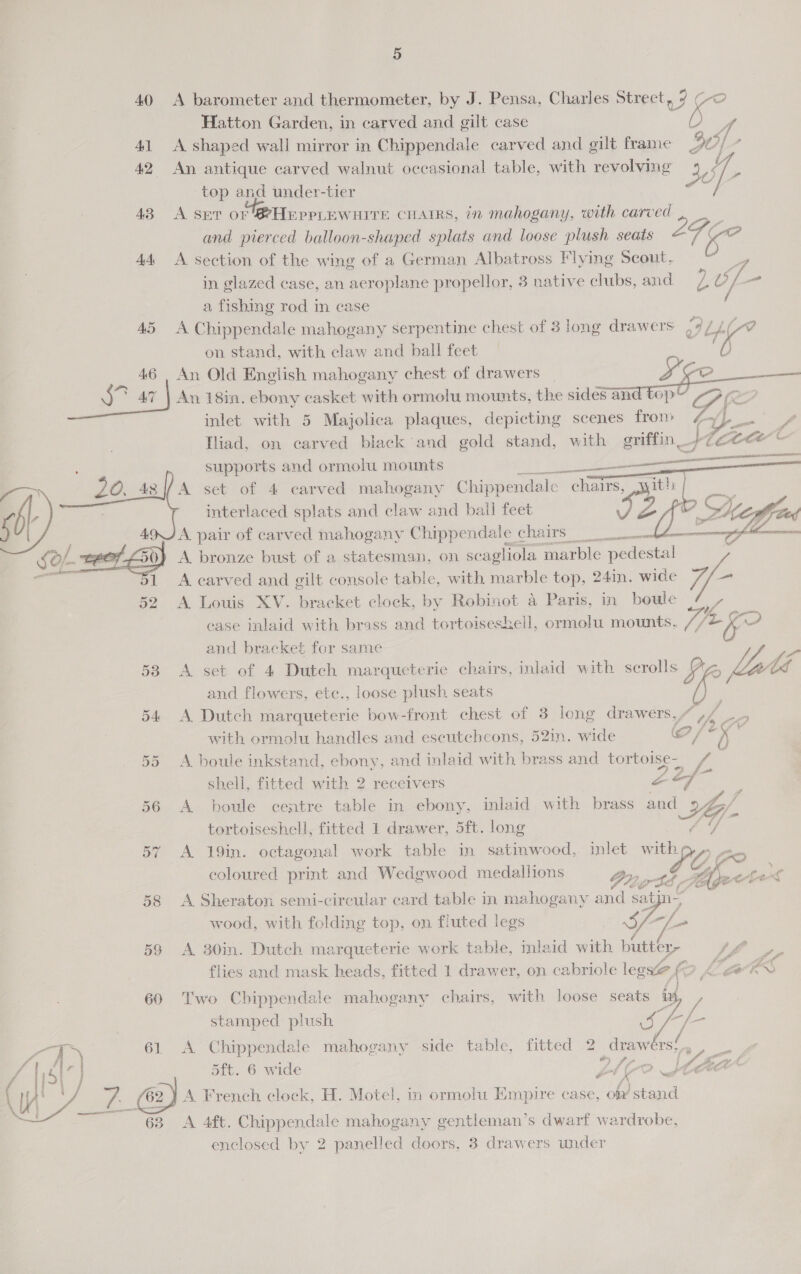 5
40 A barometer and thermometer, by J. Pensa, Charles Street,
Hatton Garden, in carved and gilt case
41 A shaped wall mirror in Chippendale carved and gilt frame 30/-
42 An antique carved walnut occasional table, with revolving
top and under-tier
43 A SET OF HEPPLEWHITE CHAIRS, in mahogany, with carved
and pierced balloon-shaped splats and loose plush seats
44 A section of the wing of a German Albatross Flying Scout,
in glazed case, an aeroplane propellor, 3 native clubs, and
a fishing rod in case
45 A Chippendale mahogany serpentine chest of 3 long drawers
on stand, with claw and ball feet
46 An Old English mahogany chest of drawers
47 An 18in. ebony casket with ormolu mounts, the sides and top
inlet with 5 Majolica plaques, depicting scenes from
Iliad, on carved black and gold stand, with griffin
supports and ormolu mounts
20. 48 A set of 4 carved mahogany Chippendale chairs, with
interlaced splats and claw and ball feet
49 A pair of carved mahogany Chippendale chairs
50 A bronze bust of a statesman, on scagliola marble pedestal
51 A carved and gilt console table, with marble top, 24in. wide
52 A Louis XV. bracket clock, by Robinot à Paris, in boule
case inlaid with brass and tortoiseshell, ormolu mounts,
and bracket for same
53 A set of 4 Dutch marqueterie chairs, inlaid with scrolls
and flowers, etc., loose plush seats
54 A Dutch marqueterie bow-front chest of 3 long drawers,
with ormolu handles and escutcheons, 52in. wide
55 A boule inkstand, ebony, and inlaid with brass and tortoise-
shell, fitted with 2 receivers
56 A boule centre table in ebony, inlaid with brass and
tortoiseshell, fitted 1 drawer, 5ft. long
57 A 19in. octagonal work table in satinwood, inlet with
coloured print and Wedgwood medallions
58 A Sheraton semi-circular card table in mahogany and satin-
wood, with folding top, on fluted legs
59 A 30in. Dutch marqueterie work table, inlaid with butter-
flies and mask heads, fitted 1 drawer, on cabriole legs
60 Two Chippendale mahogany chairs, with loose seats in
stamped plush
61 A Chippendale mahogany side table, fitted 2 drawers,
5ft. 6 wide
7. 62 A French clock, H. Motel, in ormolu Empire case, on stand
63 A 4ft. Chippendale mahogany gentleman's dwarf wardrobe,
enclosed by 2 panelled doors, 3 drawers under